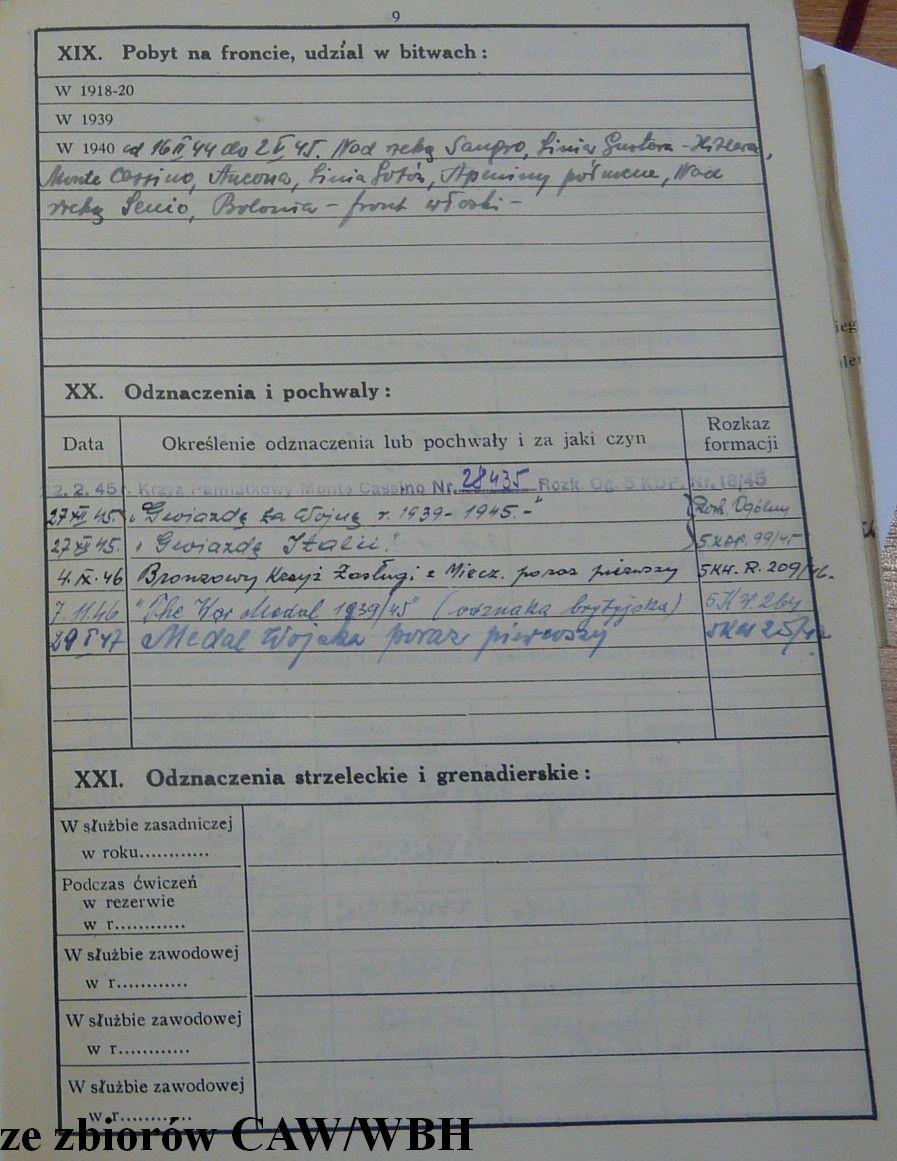 9
XIX. Pobyt na froncie, udział w bitwach :
W 1918-20
W 1939
W 1940 od 16 II 44 do 2 V 45. Nad rzeką Sangro, Linia Gustava - Hitlera,
Monte Cassino, Ancona, Linia Gotów, Apeniny północne, Nad
rzeką Senio, Bolonia - front włoski -
XX. Odznaczenia i pochwały :
Data Określenie odznaczenia lub pochwały i za jaki czyn Rozkaz formacji
22. 2. 45 r. Krzyż Pamiątkowy Monte Cassino Nr. 28435 Rozk. Og. 5 KDP. Nr. 18/45
27 XI 45. „Gwiazdę za Wojnę r. 1939-1945.-" Rozk. Ogólny
27 XI 45. „Gwiazdę Italii." 5 KDP. 99/45
4. IX. 46 Bronzowy Krzyż Zasługi z Miecz. poraz pierwszy 5 KW. R. 209/46.
7. 11. 46 "The War Medal 1939/45" (odznaka brytyjska)
29 I 47 Medal Wojska poraz pierwszy
XXI. Odznaczenia strzeleckie i grenadierskie :
W służbie zasadniczej
w roku............
Podczas ćwiczeń
w rezerwie
w r............
W służbie zawodowej
w r............
W służbie zawodowej
w r............
W służbie zawodowej
w r............
ze zbiorów CAW/WBH